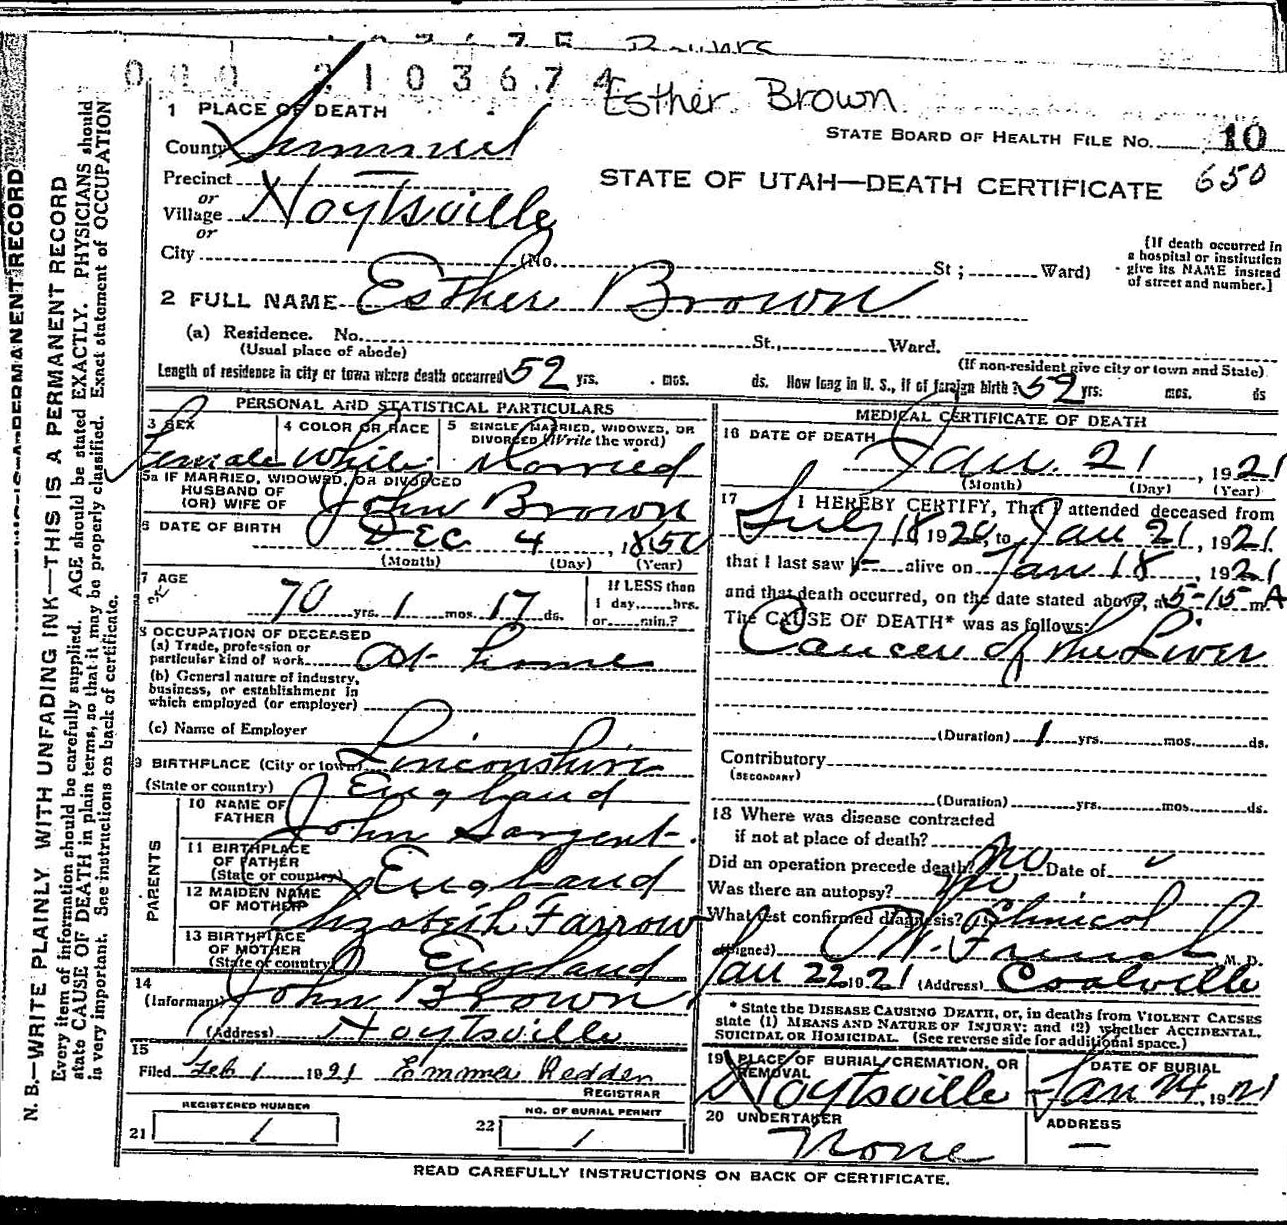 0002103674
Esther Brown
1 PLACE OF DEATH
STATE BOARD OF HEALTH FILE NO. 10
County Summit
650
STATE OF UTAH—DEATH CERTIFICATE
Precinct
or
Village Hoytsville
or
City (No. St; Ward)
[If death occurred in
a hospital or institution
give its NAME instead
of street and number.]
2 FULL NAME Esther Brown
(a) Residence. No. St., Ward.
(Usual place of abode)
(If non-resident give city or town and State)
Length of residence in city or town where death occurred 52 yrs. mos. ds. How long in U. S., if of foreign birth? 52 yrs. mos. ds
PERSONAL AND STATISTICAL PARTICULARS
3 SEX
Female
4 COLOR OR RACE
White
5 SINGLE, MARRIED, WIDOWED, OR
DIVORCED (Write the word)
Married
5a IF MARRIED, WIDOWED, OR DIVORCED
HUSBAND OF
(OR) WIFE OF John Brown
6 DATE OF BIRTH
Dec 4, 1850
(Month) (Day) (Year)
7 AGE
70 yrs. 1 mos. 17 ds.
If LESS than
1 day......hrs.
or......min.?
8 OCCUPATION OF DECEASED
(a) Trade, profession or
particular kind of work At home
(b) General nature of industry,
business, or establishment in
which employed (or employer)
(c) Name of Employer
9 BIRTHPLACE (City or town) Linconshire
(State or country) England
PARENTS
10 NAME OF
FATHER John Sargent
11 BIRTHPLACE
OF FATHER
(State or country) England
12 MAIDEN NAME
OF MOTHER Elizabeth Farrow
13 BIRTHPLACE
OF MOTHER
(State or country) England
14
(Informant) John Brown
(Address) Hoytsville
15
Filed Feb 1 1921 Emma Redden
REGISTRAR
REGISTERED NUMBER
21 1
NO. OF BURIAL PERMIT
22 1
MEDICAL CERTIFICATE OF DEATH
16 DATE OF DEATH
Jan. 21, 1921
(Month) (Day) (Year)
17 I HEREBY CERTIFY, That I attended deceased from
July 18 1920, to Jan 21, 1921
that I last saw h alive on Jan 18, 1921
and that death occurred, on the date stated above, at 5-15 m. A
The CAUSE OF DEATH* was as follows:
Cancer of the Liver
(Duration) 1 yrs. mos. ds.
Contributory
(SECONDARY)
(Duration) yrs. mos. ds.
18 Where was disease contracted
if not at place of death?
Did an operation precede death? No Date of
Was there an autopsy? No
What test confirmed diagnosis? Clinical
(Signed) M. D.
Jan 22 1921 (Address) Coalville
* State the DISEASE CAUSING DEATH, or, in deaths from VIOLENT CAUSES
state (1) MEANS AND NATURE OF INJURY; and (2) whether ACCIDENTAL,
SUICIDAL OR HOMICIDAL. (See reverse side for additional space.)
19 PLACE OF BURIAL/CREMATION, OR
REMOVAL
Hoytsville
DATE OF BURIAL
Jan 24, 1921
20 UNDERTAKER
None
ADDRESS
—
READ CAREFULLY INSTRUCTIONS ON BACK OF CERTIFICATE.
N. B.—WRITE PLAINLY. WITH UNFADING INK—THIS IS A PERMANENT RECORD
Every item of information should be carefully supplied. AGE should be stated EXACTLY. PHYSICIANS should
state CAUSE OF DEATH in plain terms, so that it may be properly classified. Exact statement of OCCUPATION
is very important. See instructions on back of certificate.